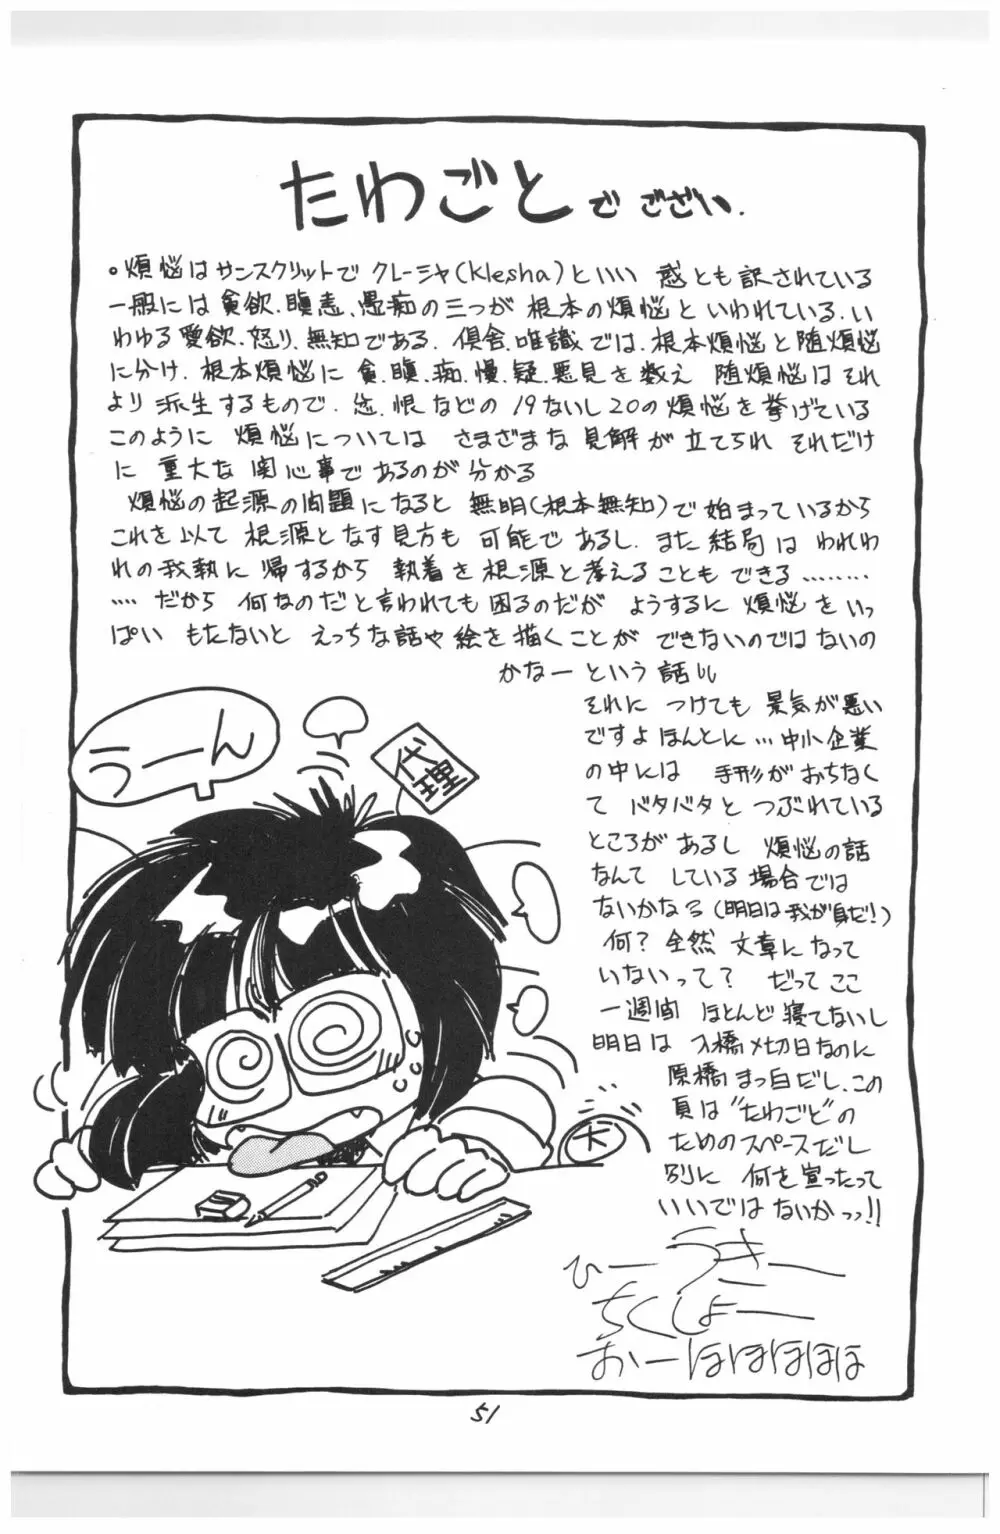 たわごとでござい.
○煩悩はサンスクリットでクレーシャ(klesha)といい 惑とも訳されている
一般には貪欲.瞋恚、愚痴の三つが 根本の煩悩といわれている.い
わゆる愛欲.怒り.無知である. 倶舎.唯識では.根本煩悩と随煩悩
に分け.根本煩悩に 貪.瞋.痴.慢.疑.悪見を数え 随煩悩はそれ
より派生するもので.忿.恨などの19ないし20の煩悩を挙げている
このように 煩悩については さまざまな見解が立てられ それだけ
に 重大な関心事であるのが分かる
煩悩の起源の問題になると 無明(根本無知)で始まっているから
これを以て 根源となす見方も可能であるし.また結局は われわ
れの我執に 帰するから 執着を根源と考えることもできる………
…. だから 何なのだと言われても困るのだが ようするに 煩悩をいっ
ぱい もたないと えっちな話や絵を描くことが できないのではないの
かなーという話
それに つけても 景気が悪い
ですよ ほんとに…中小企業
の中には 手形がおちなく
て バタバタと つぶれている
ところが あるし 煩悩の話
なんて している場合では
ないかなぁ(明日は我が身だ!)
何? 全然 文章になって
いないって? だって ここ
一週間 ほとんど 寝てないし
明日は 入稿〆切日なのに
原稿まっ白だし.この
頁は"たわごと"の
ためのスペースだし
別に 何を宣ったって
いいではないかっっ!!
ひーうきー
ちくしょー
おーほほほほほ
うーん
代理
大
51